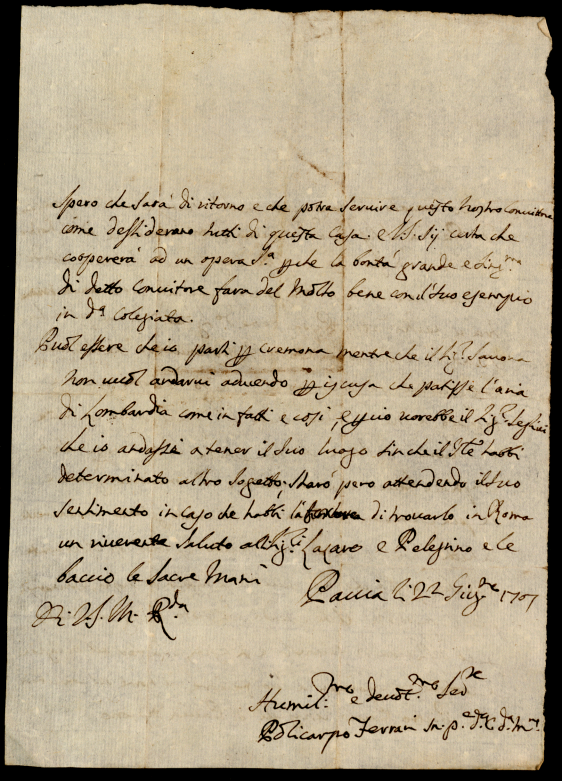 Spero che sarà di ritorno e che potra servire questo nostro Convittore
come dessiderano tutti di questa Casa. e V.S. sij certa che
coopererà ad un opera S.ta che la bontà grande e
di detto convittore fara del molto bene con il suo esempio
in d.a Colegiata.
Puol essere che io parti per Cremona mentre che il Sig.r Savona
non vuol andarvi aducendo per iscusa che patisse l'aria
di Lombardia come in fatti e cosi, e perciò vorebbe il Sig.r
che io andassi a tener il suo luogo sin che il habbi
determinato altro sogetto, starò pero attendendo il suo
sentimento in caso che habbi la fortuna di trovarlo in Roma
un riverente saluto alli Sig.ri Lazaro e Pelegrino e le
baccio le sacre mani
Pavia li 22 Giug.no 1707
Di V.S. M. R.da
Humil.mo e devot.mo
Policarpo Ferrari